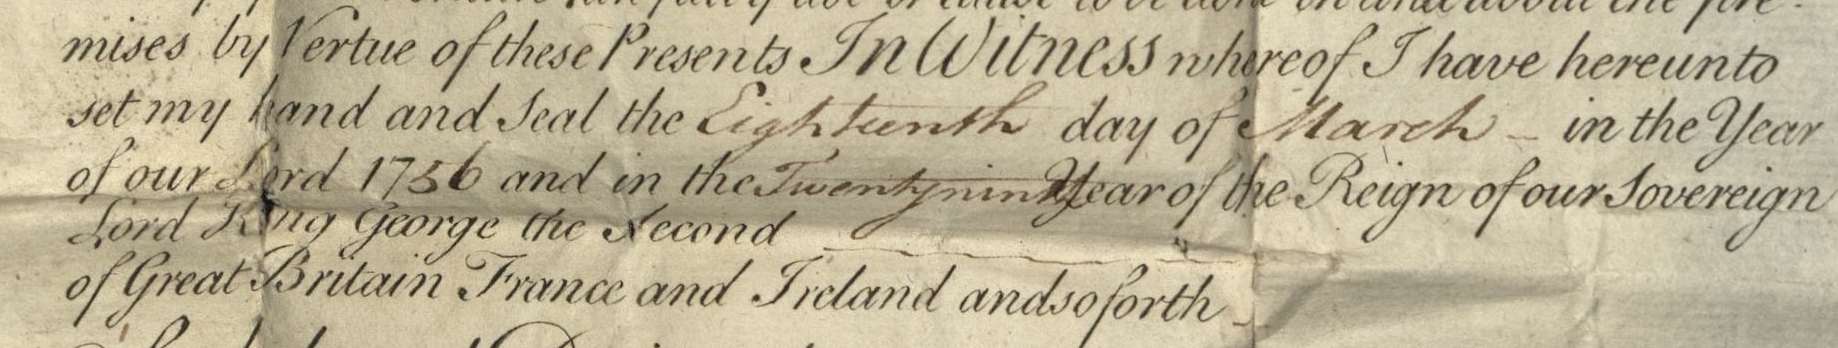 mises by Vertue of these Presents In Witness whereof I have hereunto
set my hand and Seal the Eighteenth day of March - in the Year
of our Lord 1756 and in the Twentyninth Year of the Reign of our Sovereign
Lord King George the Second
of Great Britain France and Ireland andsoforth